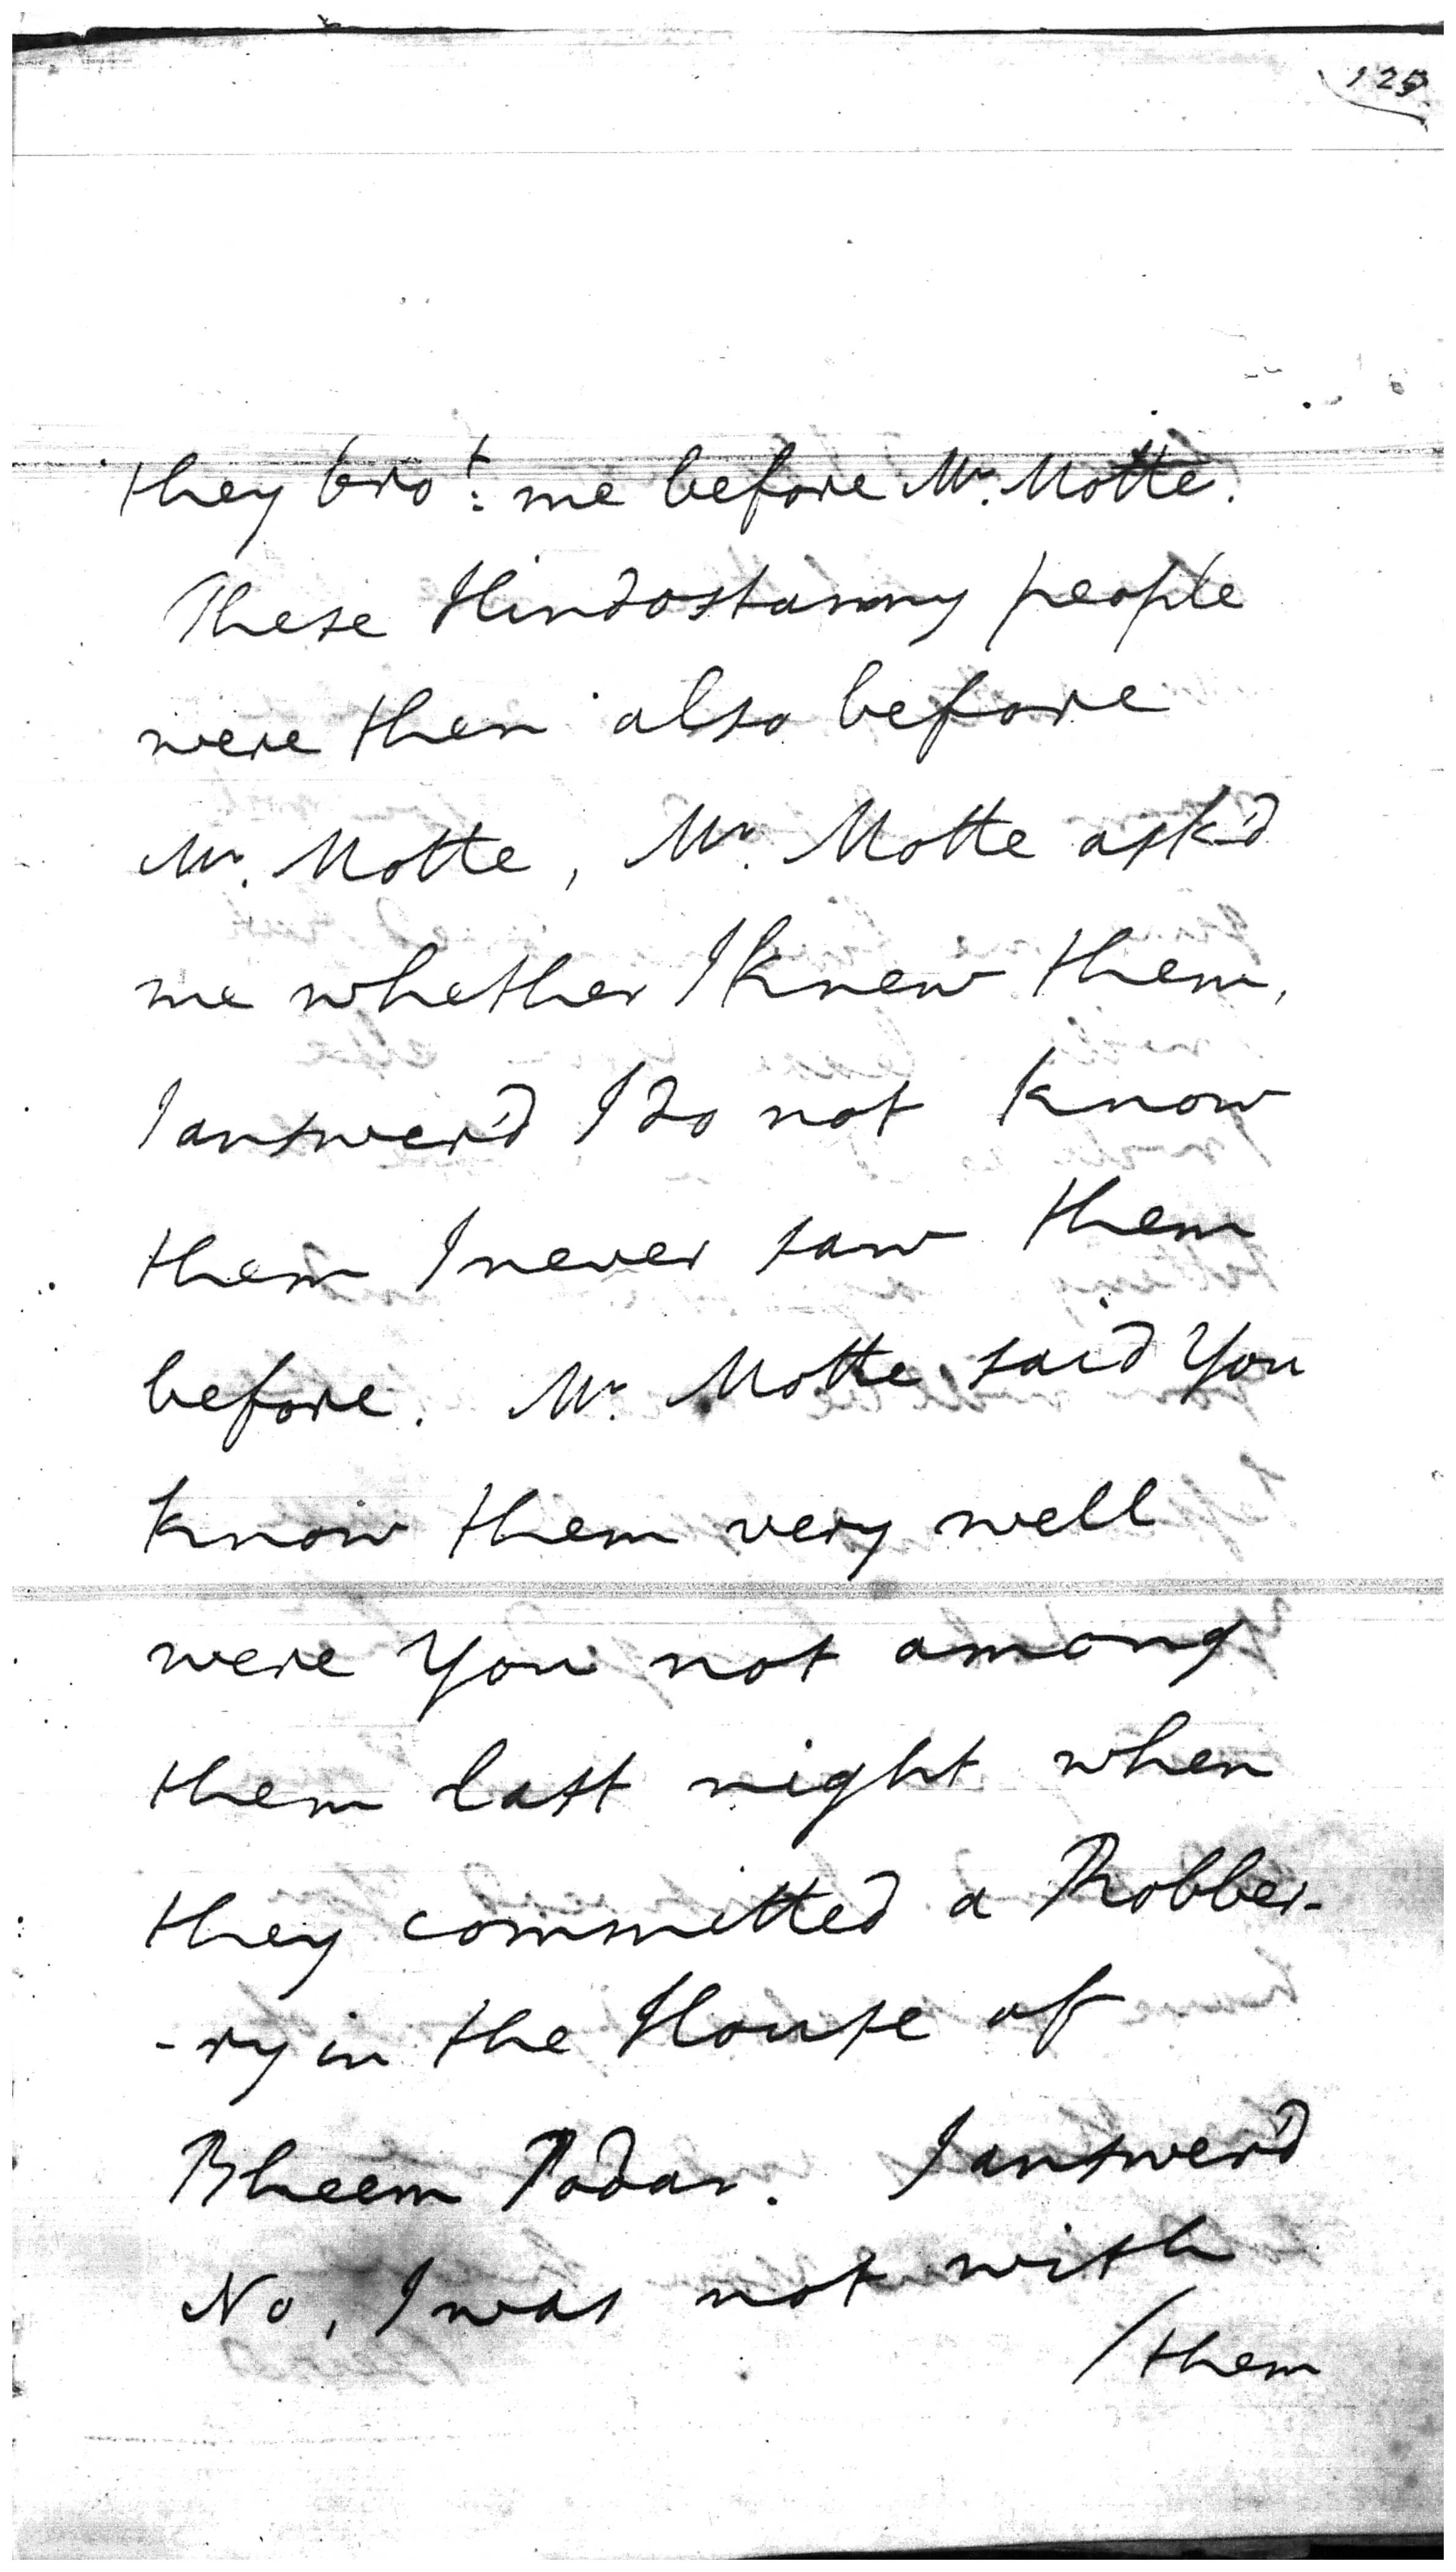 125
they bro.t me before Mr. Motte.
These Hindostanny people
were then also before
Mr. Motte, Mr. Motte ask'd
me whether I knew them,
I answer'd I do not know
them I never saw them
before. Mr. Motte said You
know them very well
were You not among
them last night when
they committed a Robber-
-ry in the House of
Bheem Podar. I answer'd
No, I was not with
/them